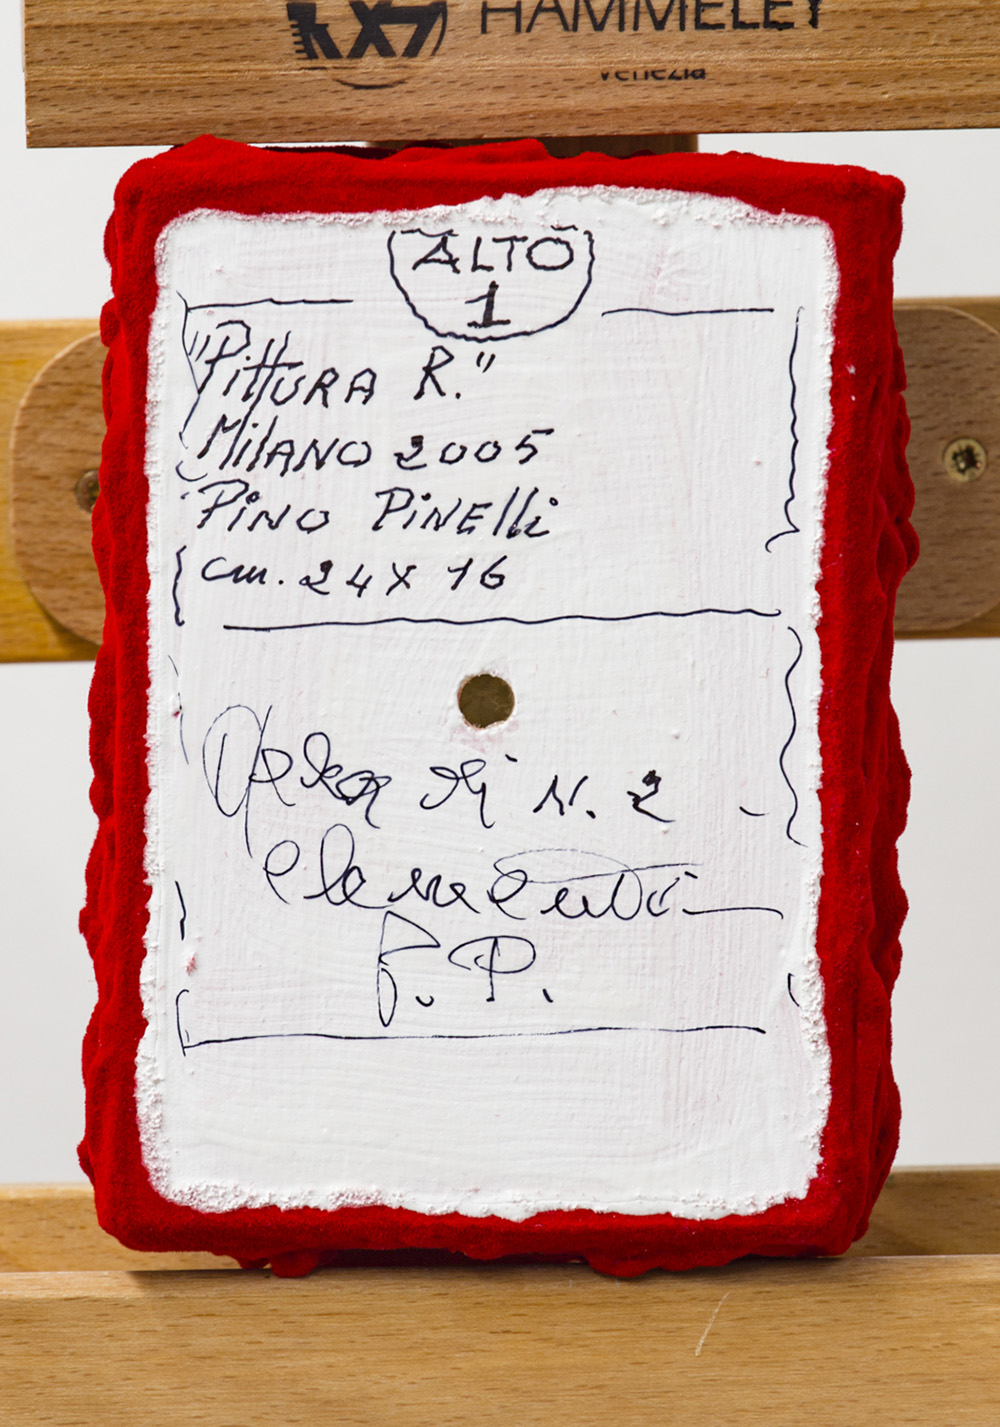 HAMMELEY
Venezia
ALTO
1
"PittURA R."
MilANO 2005
PiNO PiNElli
cm. 24 x 16
Opera di N. 2
elementi
P.P.